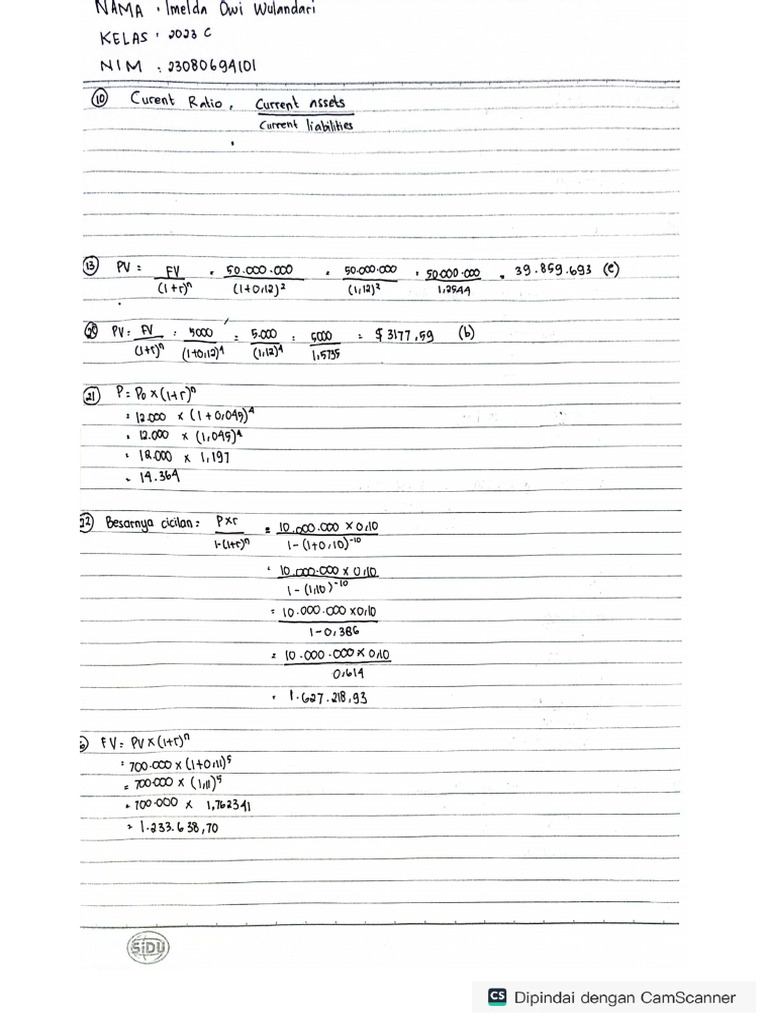 NAMA : Imelda Dwi Wulandari
KELAS : 2023 C
NIM : 23080694101
(10) Curent Ratio : Current assets / Current liabilities
(13) PV = FV / (1+r)^n = 50.000.000 / (1+0,12)^2 = 50.000.000 / (1,12)^2 = 50.000.000 / 1,2544 = 39.859.693 (e)
(20) PV = FV / (1+r)^n = 5000 / (1+0,12)^4 = 5.000 / (1,12)^4 = 5000 / 1,5735 = $ 3177,59 (b)
(21) P = Po × (1+r)^n
= 12.000 × (1+0,045)^4
= 12.000 × (1,045)^4
= 12.000 × 1,197
= 14.364
22) Besarnya cicilan = P×r / 1-(1+r)^n = 10.000.000 × 0,10 / 1-(1+0,10)^-10
= 10.000.000 × 0,10 / 1-(1,10)^-10
= 10.000.000 × 0,10 / 1-0,386
= 10.000.000 × 0,10 / 0,614
= 1.627.218,93
) FV = PV × (1+r)^n
= 700.000 × (1+0,11)^5
= 700.000 × (1,11)^5
= 700.000 × 1,762341
= 1.233.638,70
SiDU
CS Dipindai dengan CamScanner